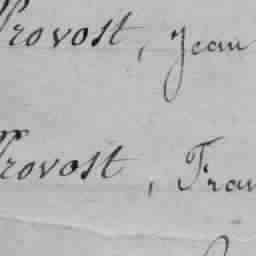 Provost, Jean
Provost, Fran